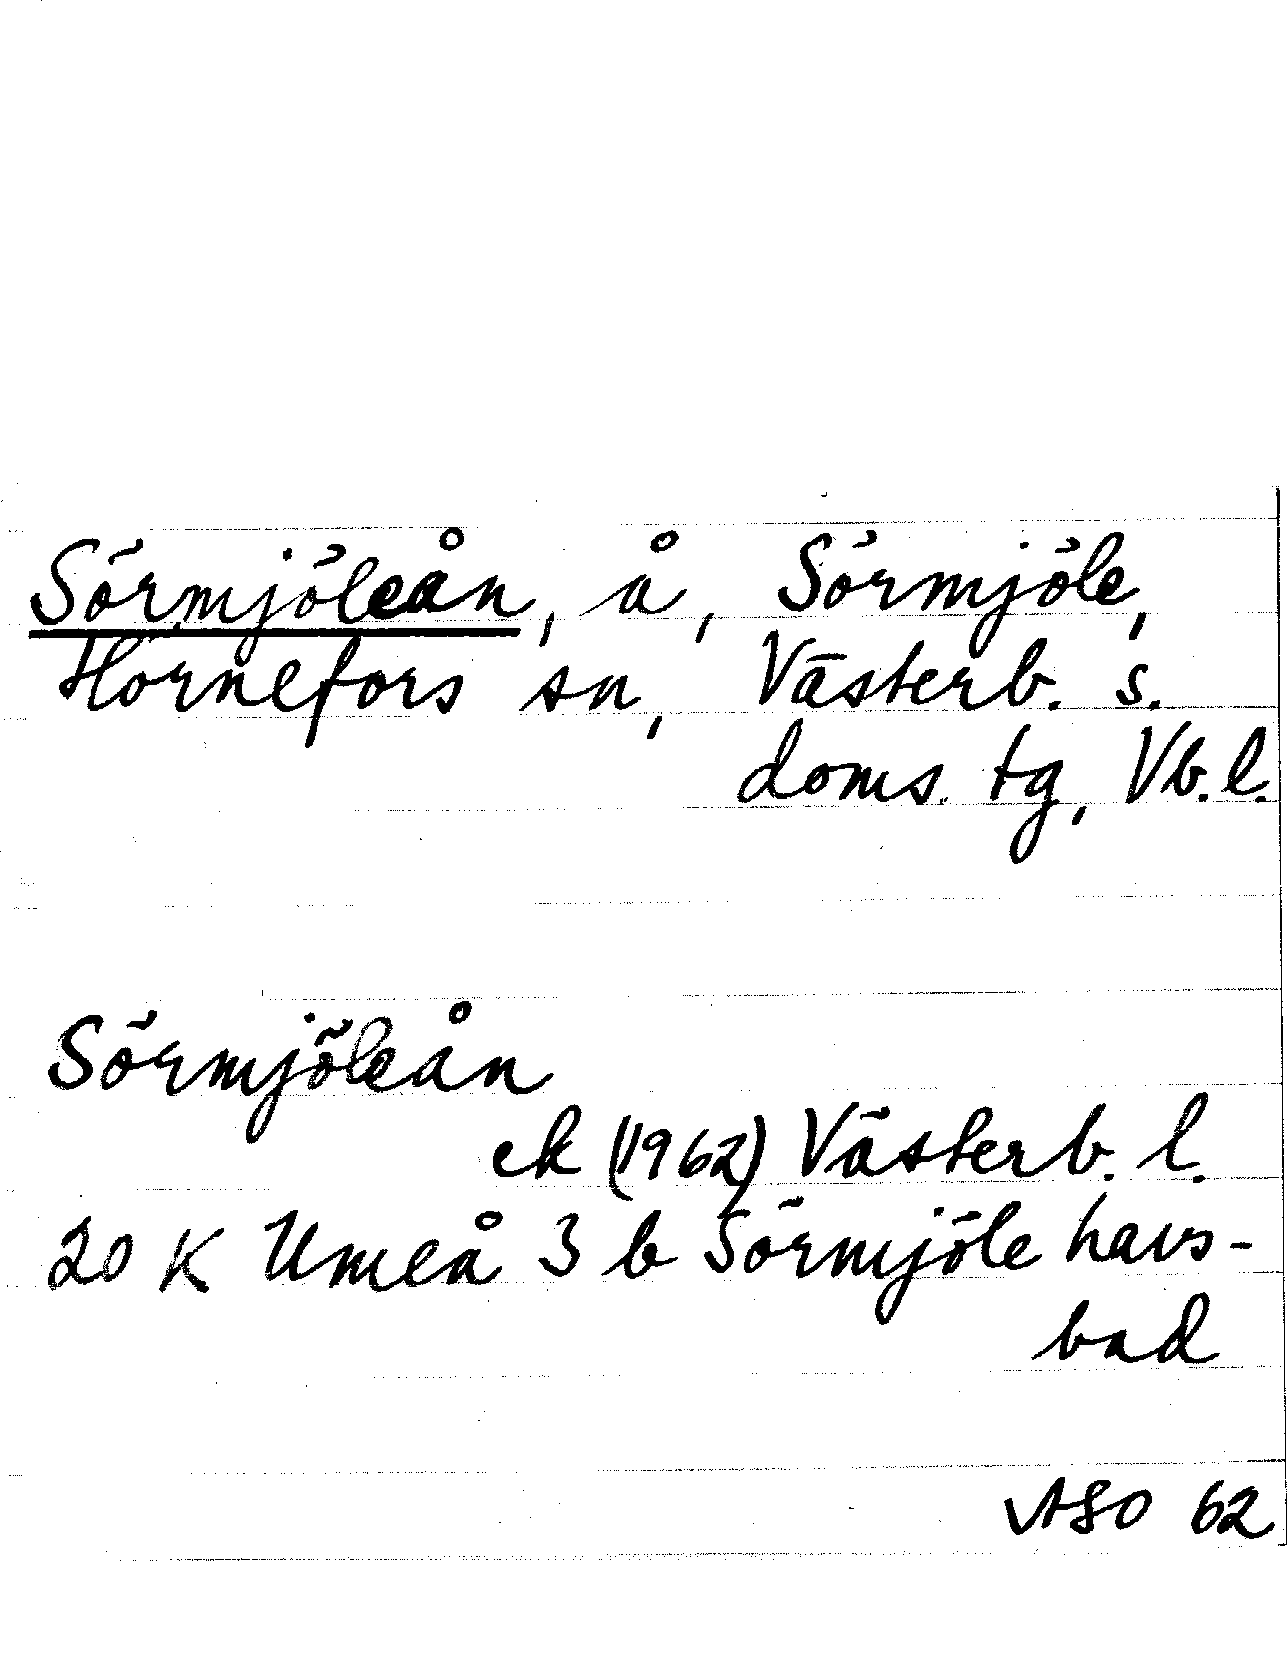 Sörmjöleån, å, Sörmjöle,
Hörnefors sn, Västerb. s.
doms. tg, Vb. l.
Sörmjöleån
ek (1962) Västerb. l.
20 K Umeå 3 b Sörmjöle havs-
bad
ASO 62